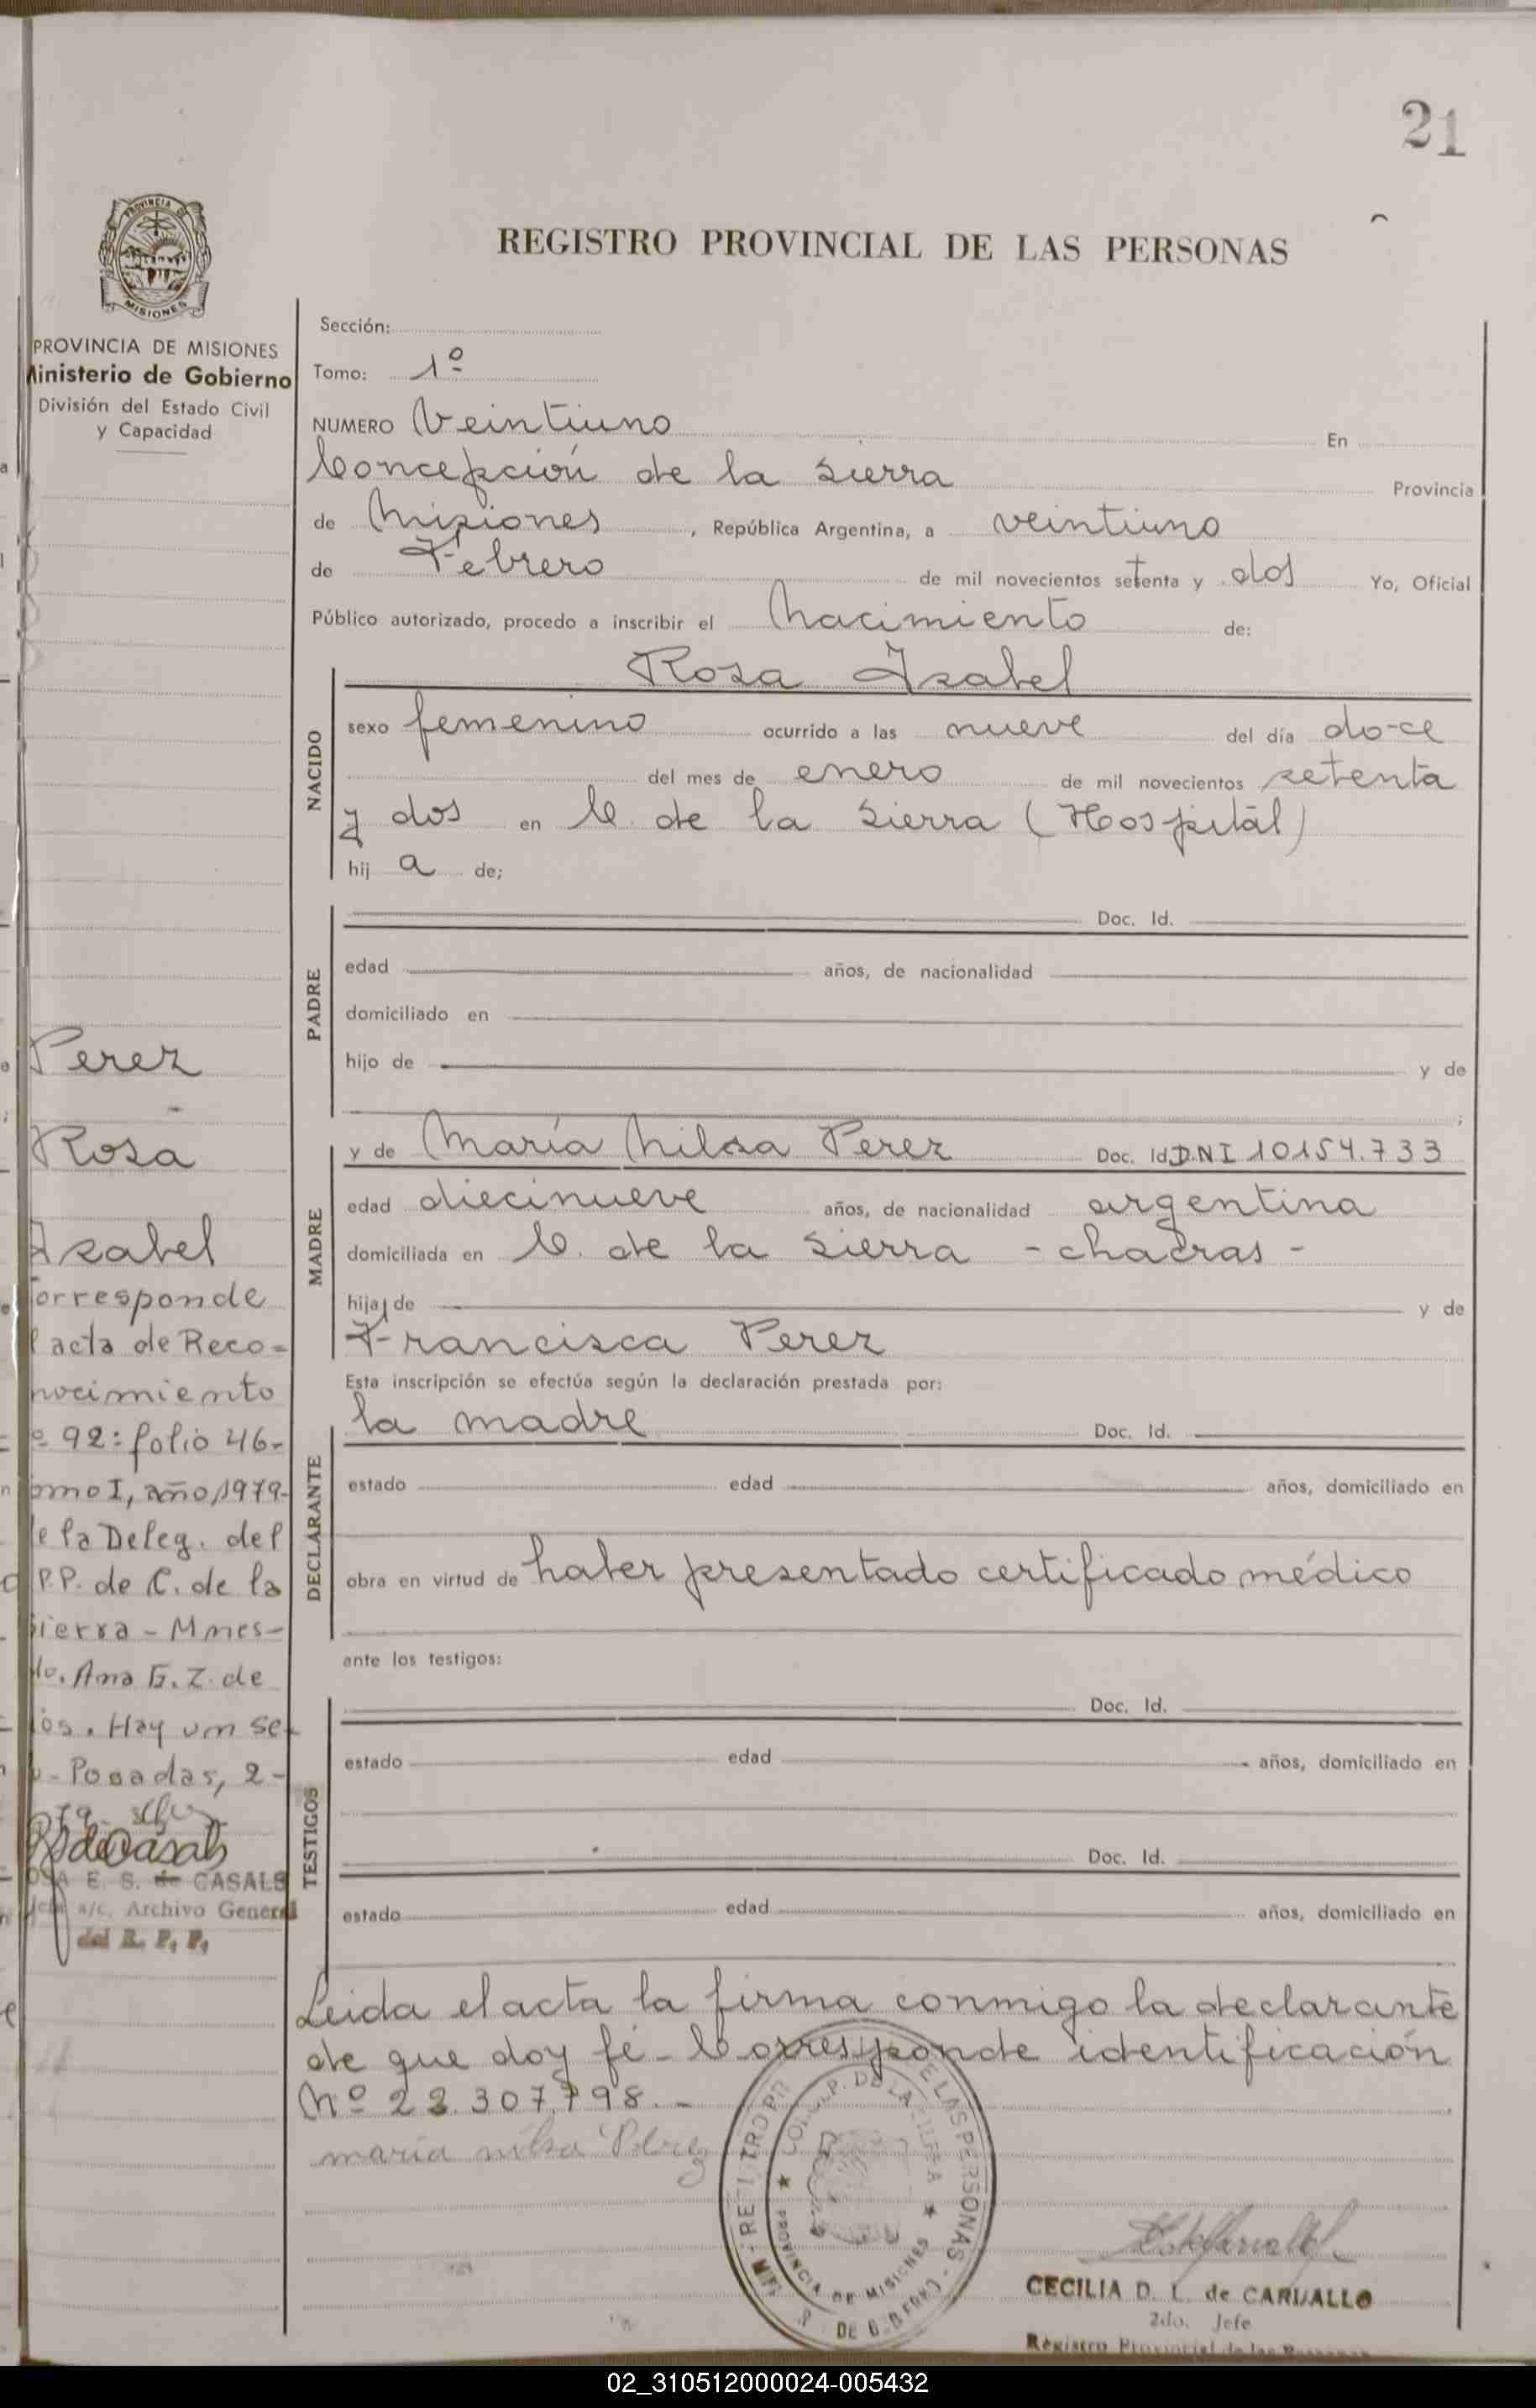 21
PROVINCIA DE
MISIONES
PROVINCIA DE MISIONES
Ministerio de Gobierno
División del Estado Civil
y Capacidad
REGISTRO PROVINCIAL DE LAS PERSONAS
Sección:
Tomo: 1º
NUMERO Veintiuno En
Concepción de la Sierra Provincia
de Misiones, República Argentina, a veintiuno
de Febrero de mil novecientos setenta y dos Yo, Oficial
Público autorizado, procedo a inscribir el Nacimiento de:
NACIDO
Rosa Isabel
sexo femenino ocurrido a las nueve del día do-ce
del mes de enero de mil novecientos setenta
y dos en C. de la Sierra (Hospitál)
hij a de;
PADRE
Doc. Id.
edad años, de nacionalidad
domiciliado en
hijo de y de
;
MADRE
y de María Nilsa Perez Doc. Id D.N I 10154.733
edad diecinueve años, de nacionalidad argentina
domiciliada en C. de la Sierra - chacras -
hija de y de
Francisca Perez
Esta inscripción se efectúa según la declaración prestada por:
DECLARANTE
la madre Doc. Id.
estado edad años, domiciliado en
obra en virtud de haber presentado certificado médico
ante los testigos:
TESTIGOS
Doc. Id.
estado edad años, domiciliado en
Doc. Id.
estado edad años, domiciliado en
Leida el acta la firma conmigo la declarante
de que doy fé - Corresponde identificación
Nº 22.307.798.-
maria nilsa Perez
DE LAS PERSONAS
PROVINCIA DE MISIONES
CECILIA D. L. de CARVALLO
2do. Jefe
Registro Provincial de las
Perez
Rosa
Isabel
orresponde
acta de Reco-
nocimiento
º 92: folio 46-
omo I, año 1979-
e la Deleg. del
P.P. de C. de la
Sierra - Mnes-
do. Ana G. Z. de
ios. Hay un se-
- Posadas, 2-
79-
OSA E. S. de CASALS
Jefe a/c. Archivo General
del R. P. P.
02_310512000024-005432